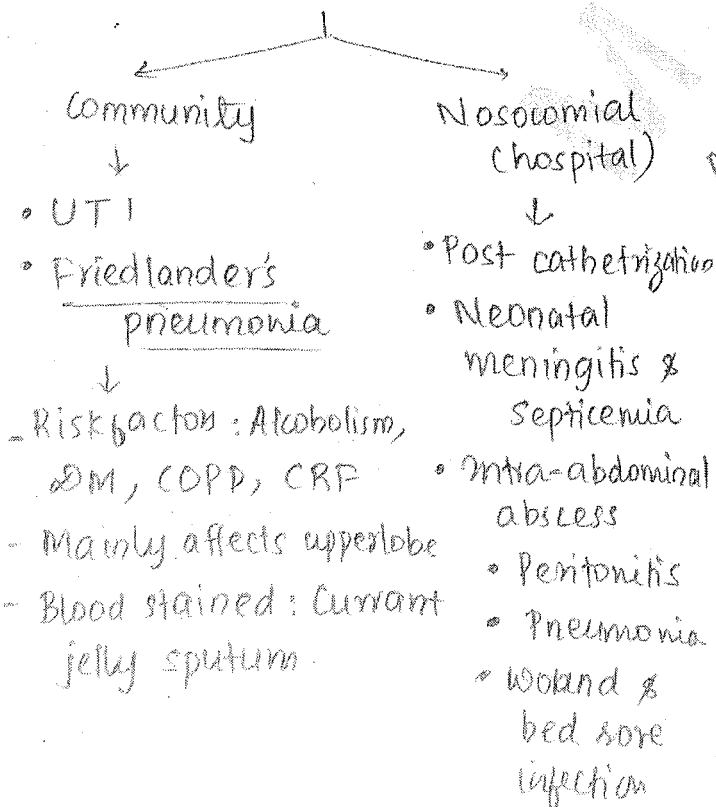 Community
↓
• UTI
• Friedlander's
pneumonia
↓
- Risk factors : Alcoholism,
DM, COPD, CRF
- Mainly affects upperlobe
- Blood stained : Currant
jelly sputum.
Nosocomial
(hospital)
↓
• Post cathetrization
• Neonatal
meningitis &
Septicemia
• Intra-abdominal
abscess
• Peritonitis
• Pneumonia
• Wound &
bed sore
infection